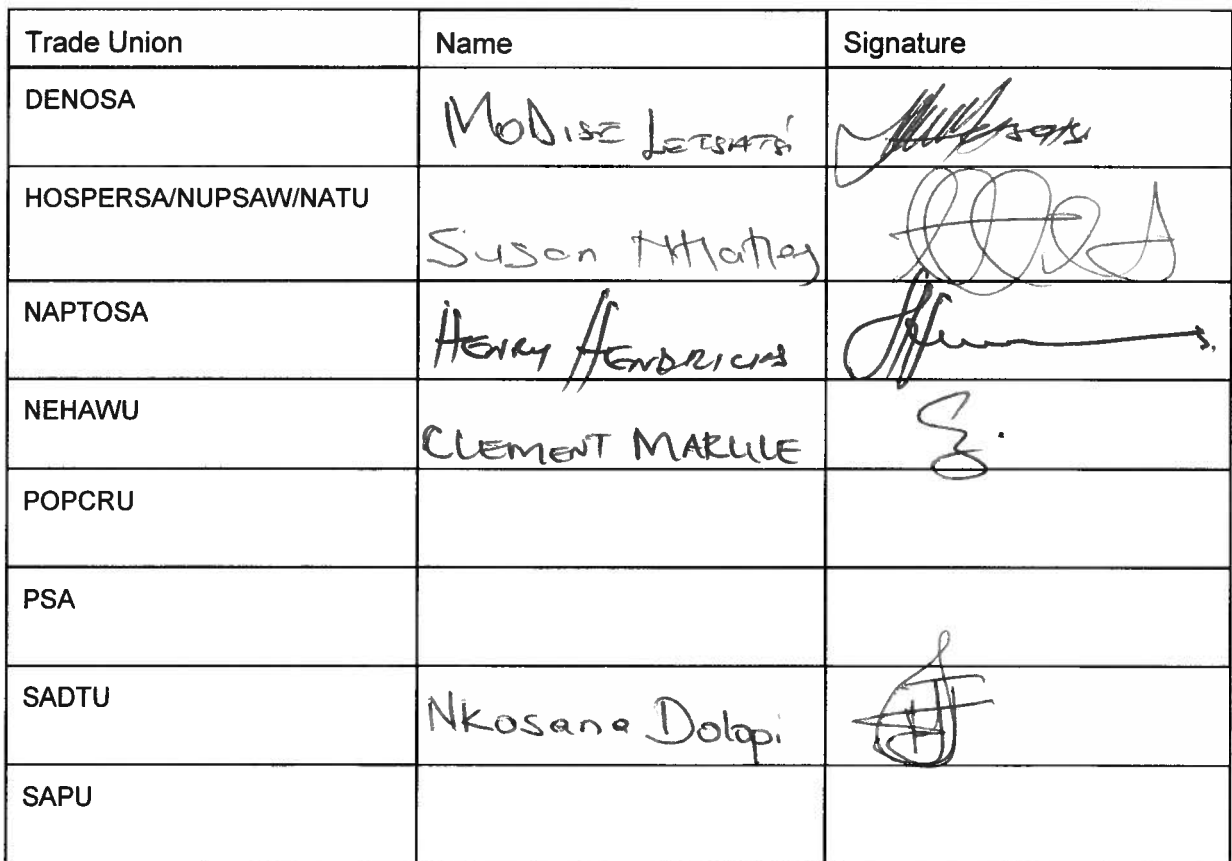 Trade Union Name Signature
DENOSA MODISE LETSATSI
HOSPERSA/NUPSAW/NATU Susan
NAPTOSA HENRY HENDRICKS
NEHAWU CLEMENT MARULE
POPCRU
PSA
SADTU Nkosana Dolopi
SAPU